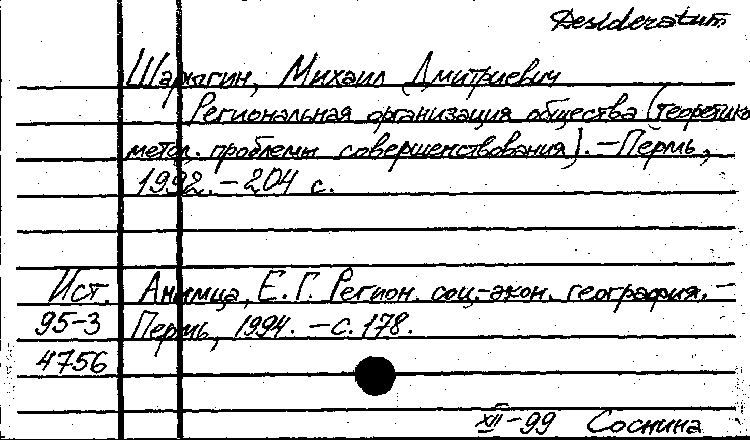 Desideratum
Шарыгин, Михаил Дмитриевич
Региональная организация общества (теоретико
метод. проблемы совершенствования). – Пермь,
1992. – 204 с.
Ист. Анимица, Е. Г. Регион. соц.-экон. география. –
95-3 Пермь, 1994. – С. 178.
4756
XII-99 Соснина